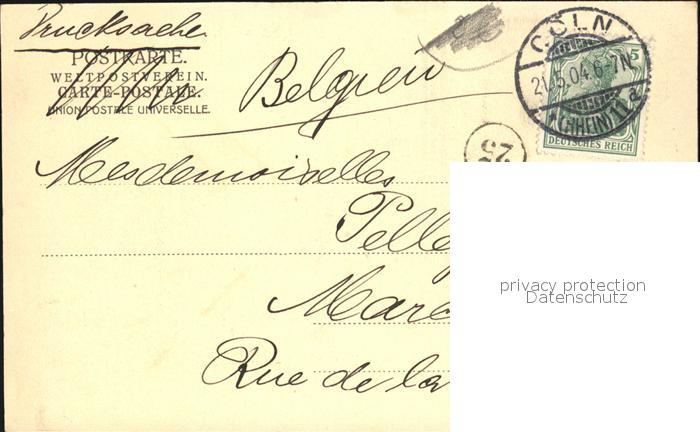 Drucksache
POSTKARTE.
WELTPOSTVEREIN.
CARTE-POSTALE.
UNION POSTALE UNIVERSELLE.
Belgien
CÖLN
21.5.04.6-7N
*(RHEIN)11a
5
DEUTSCHES REICH
25
Mesdemoiselles
Pelle
Marc
Rue de la
privacy protection
Datenschutz